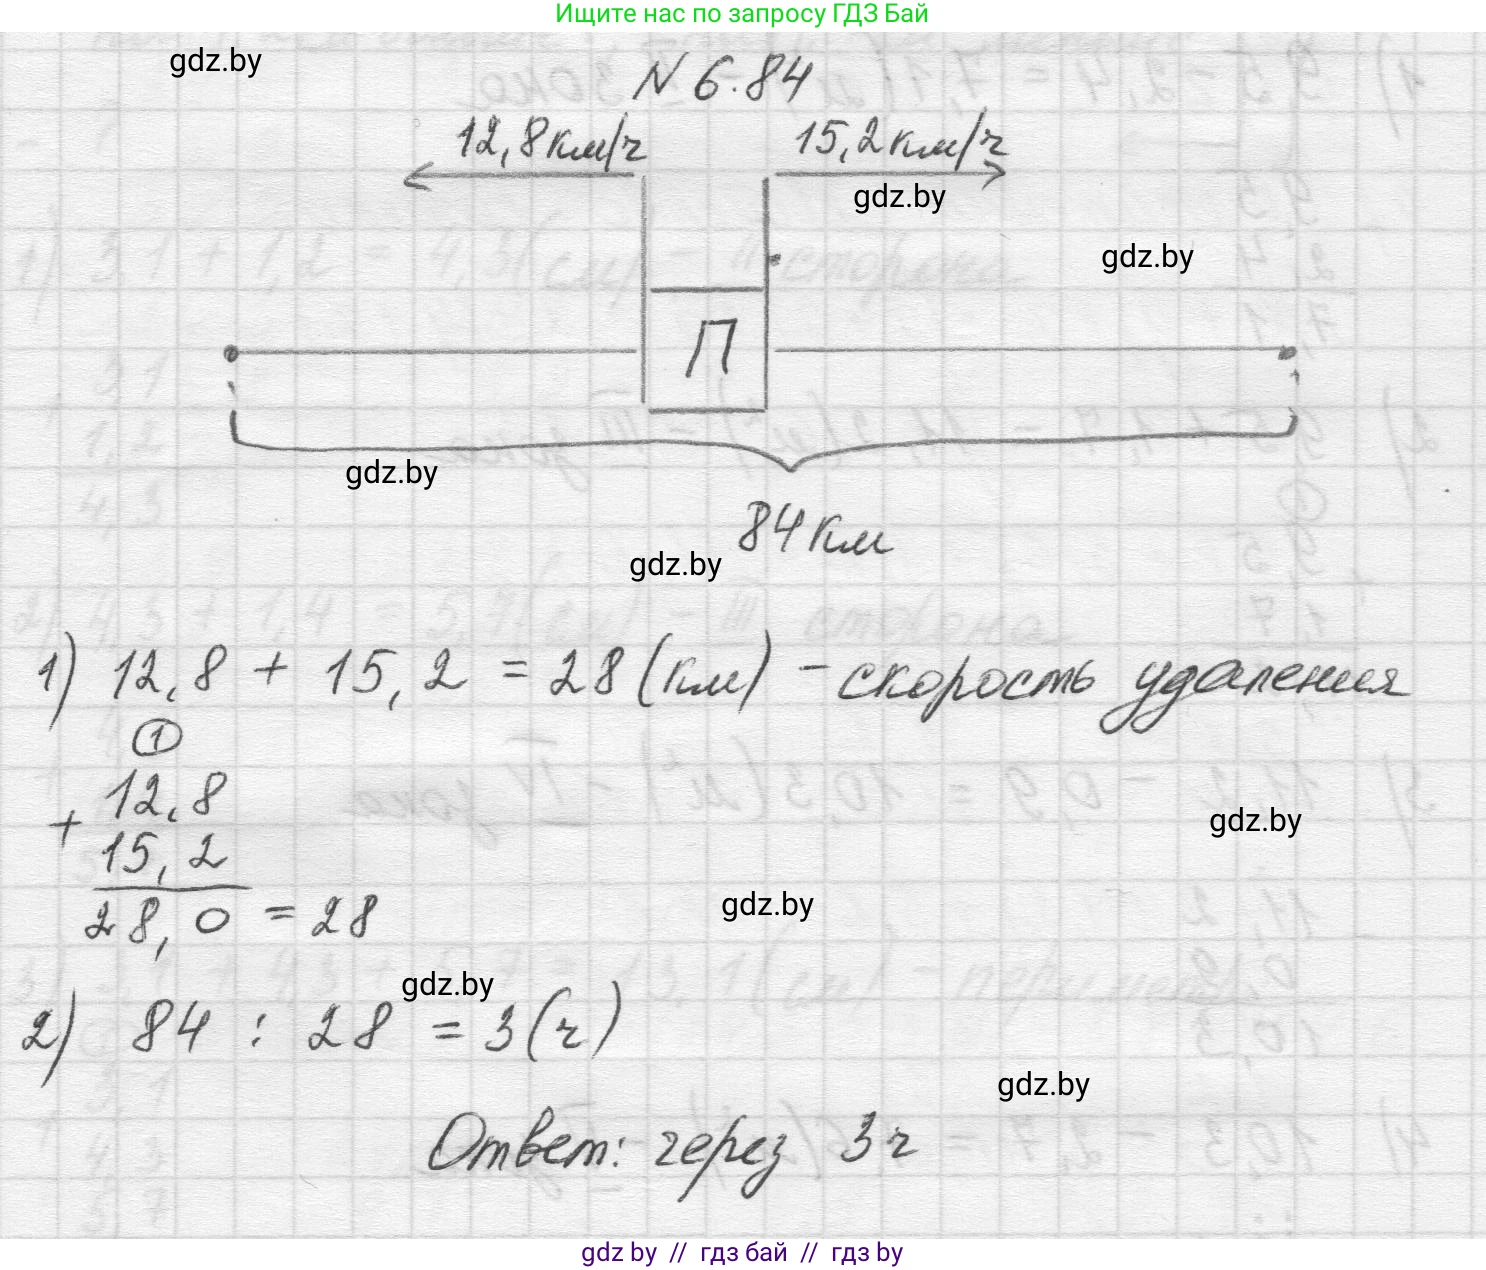 Ищите нас по запросу ГДЗ Бай
gdz.by
N 6.84
12,8км/ч 15,2км/ч
gdz.by
gdz.by
П
gdz.by
84 км
gdz.by
1) 12,8 + 15,2 = 28 (км) - скорость удаления
1
+ 12,8
15,2
28,0 = 28
gdz.by
gdz.by
gdz.by
2) 84 : 28 = 3 (ч)
gdz.by
Ответ: через 3 ч
gdz by // гдз бай // гдз by